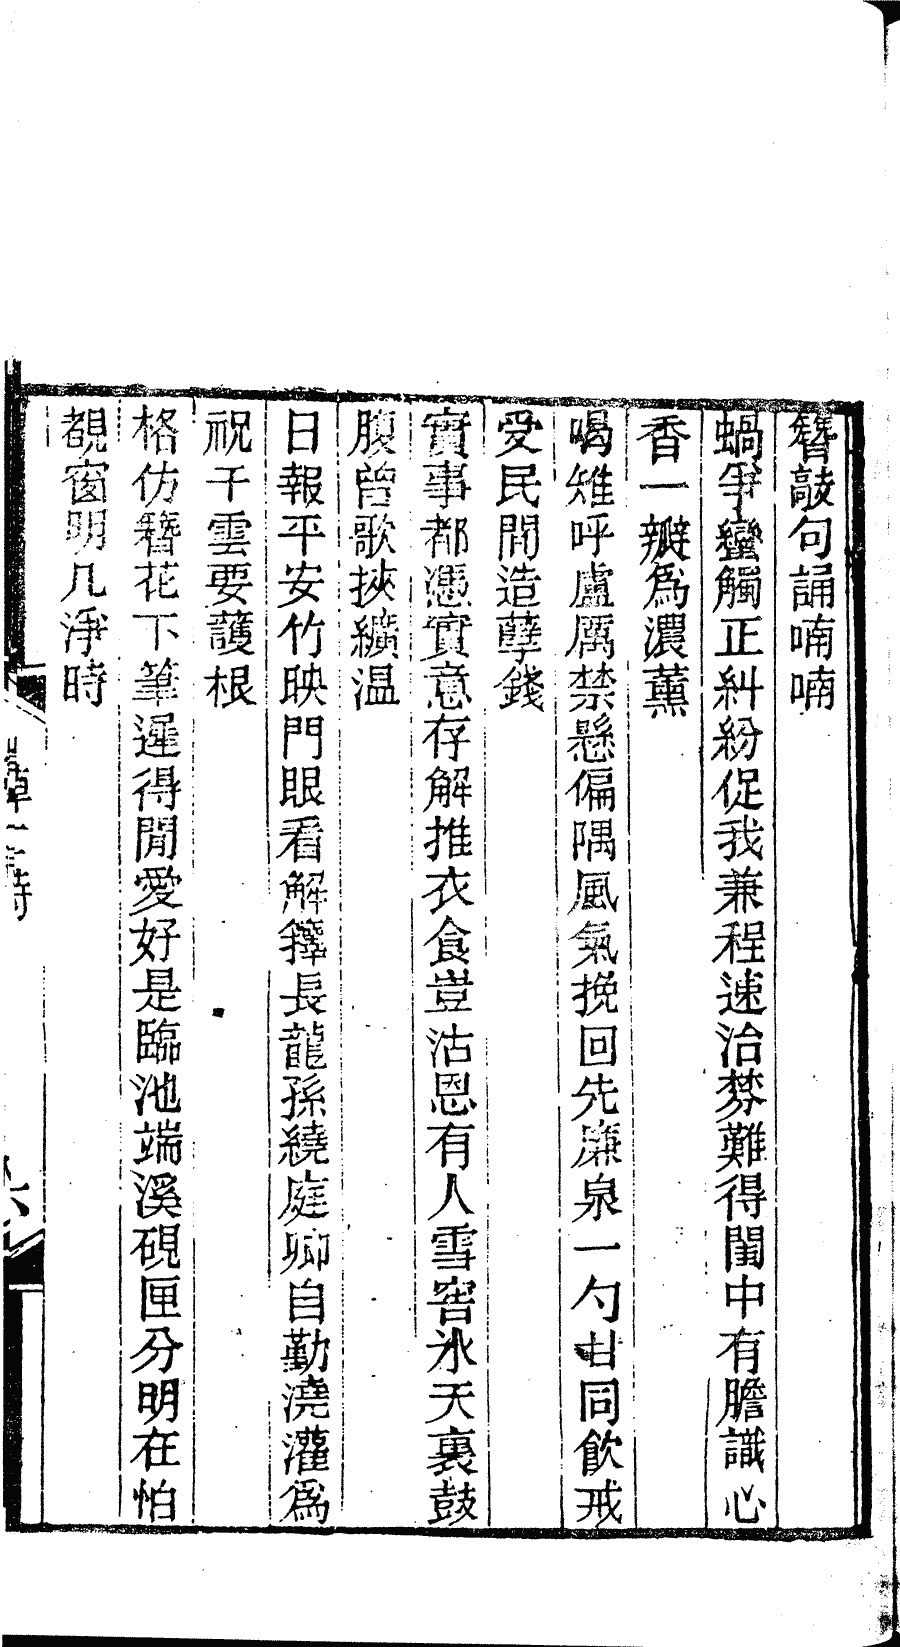 簪敲句誦喃喃
蝸爭蠻觸正糾紛促我兼程速治棼難得閨中有膽識心
香一瓣爲濃薰
喝雉呼盧厲禁懸偏隅風氣挽回先廉泉一勺甘同飲戒
受民間造孽錢
實事都憑實意存解推衣食豈沽恩有人雪窖氷天裏鼓
腹曾歌挾纊温
日報平安竹映門眼看解籜長龍孫繞庭卿自勤澆灌爲
祝干雲要護根
格仿簪花下筆遲得閒愛好是臨池端溪硯匣分明在怕
覩窗明几淨時